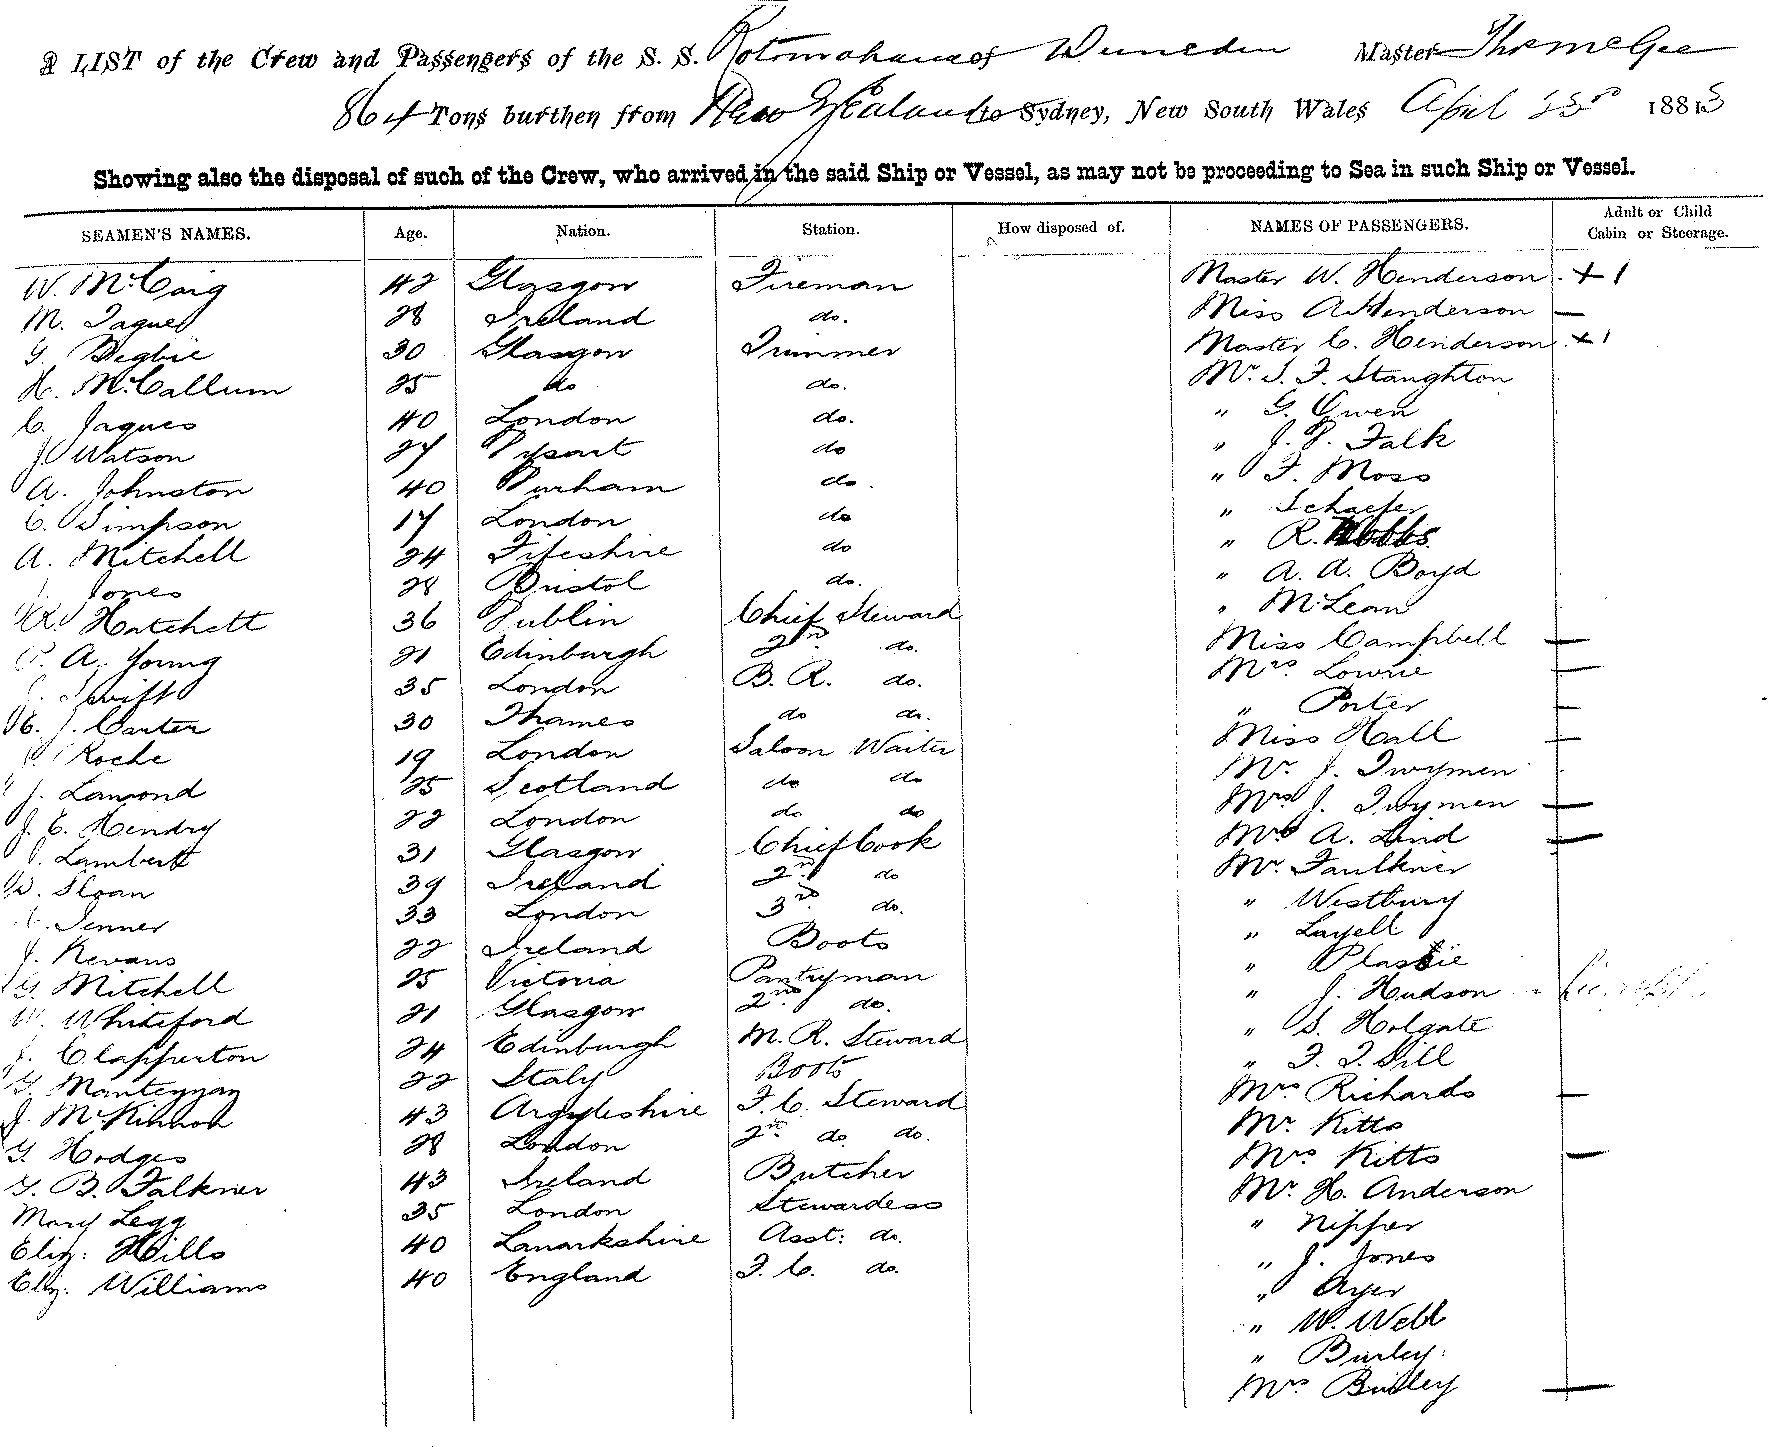 A LIST of the Crew and Passengers of the S. S. Rotomahana of Dunedin Master Thos McGee
864 Tons burthen from New Zealand to Sydney, New South Wales April 1883
Showing also the disposal of such of the Crew, who arrived in the said Ship or Vessel, as may not be proceeding to Sea in such Ship or Vessel.
SEAMEN'S NAMES. Age. Nation. Station. How disposed of. NAMES OF PASSENGERS. Adult or Child
Cabin or Steerage.
W. McCaig 42 Glasgow Fireman Master W. Henderson + 1
M. Jaques 28 Ireland do. Miss A. Henderson —
G. Begbie 30 Glasgow Trimmer Master C. Henderson + 1
H. McCallum 25 do do. Mr. S. F. Staughton
C. Jaques 40 London do. " G. Owen
J. Watson 27 Dysart do " J. P. Falk
A. Johnston 40 Durham do. " F. Moss
C. Simpson 17 London do " Schaefer
A. Mitchell 24 Fifeshire do " R. Hobbs
Jones 28 Bristol do. " A. A. Boyd
R. Hatchett 36 Dublin Chief Steward " McLean
P. A. Young 21 Edinburgh 2nd do. Miss Campbell —
Swift 35 London B. R. do. Mrs. Lowrie —
H. J. Carter 30 Thames do do. " Porter —
Roche 19 London Saloon Waiter Miss Hall —
J. Lamond 25 Scotland do do Mr. J. Twymen
J. E. Hendry 22 London do do Mrs J. Twymen —
Lambert 31 Glasgow Chief Cook Mrs A. Lind —
D. Sloan 39 Ireland 2nd do Mr. Faulkner
Jenner 33 London 3rd do. " Westbury
J. Kevans 22 Ireland Boots " Layell
G. Mitchell 25 Victoria Pantryman "
W. Whiteford 21 Glasgow 2nd do. " J. Hudson
J. Clapperton 24 Edinburgh M. R. Steward " S. Holgate
G. 22 Italy Boots " F. J. Dill
J. McKinnon 43 Argyleshire F. C. Steward Mrs Richards —
G. Hodges 28 London 2nd do. do. Mr. Kitts
T. B. Falkner 43 Ireland Butcher Mrs Kitts —
Mary Legg 35 London Stewardess Mr. H. Anderson
Eliz: Hills 40 Lanarkshire Asst: do. " Nipper
Eliz. Williams 40 England F. C. do. " J. Jones
" Ayer
" W. Webb
" Burley
Mrs Burley —